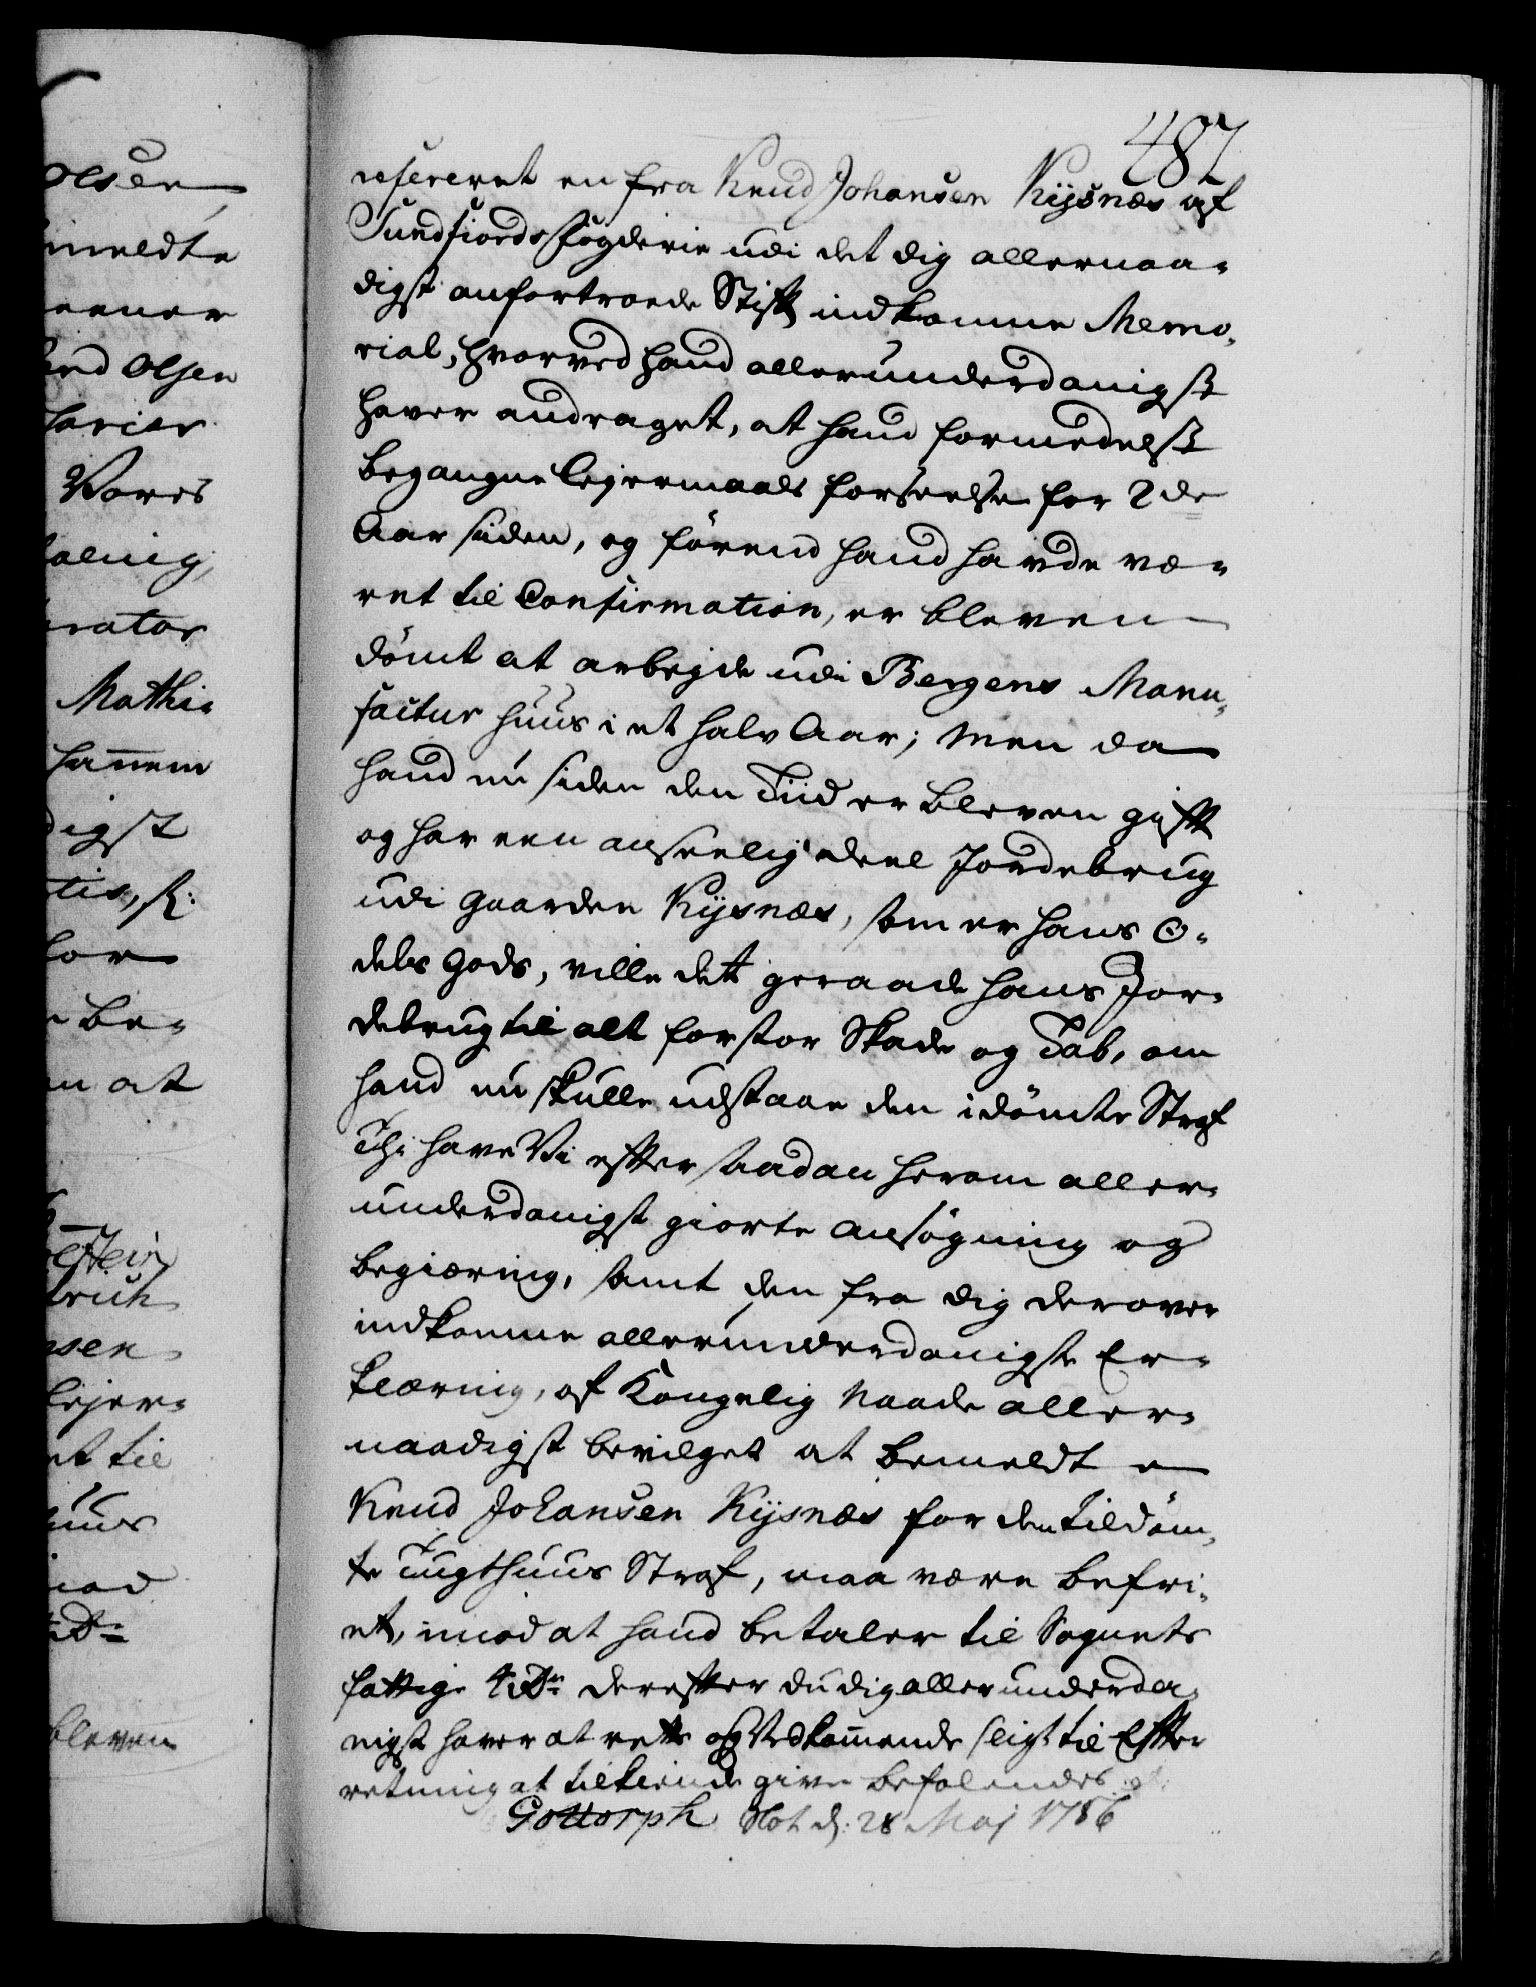 olsen
meldte
eener
end Olsen
harier
Vores
rator
Mathi=
hannem
digst
tis, p:
for
be=
en at
sen
Lejer=
et til
huus
imod
bleven
487
refereret en fra Knud Johansen Kysnæs af
Sundfiords Fogderie udi det dig allernaa=
digst anfortroede Stift indkomne Memo=
rial, hvorved hand allerunderdanigst
haver andraget, at hand formedelst
begangne Lejermaals forseelse for 2de
Aar siden, og förend hand havde væ=
ret til Confirmation, er bleven
dömt at arbejde udi Bergens Manu=
factur huus i et halv Aar; men da
hand nu siden den Tiid er bleven gift
og har een anseelig deel Jordebrug
udi gaarden Kysnæs, som er hans O=
dels gods, ville det geraade hans Jor=
debrug til alt for stor Skade og Tab, om
hand nu skulle udstaae den idömte Straf
Thi have Vi efter saadan herom aller=
underdanigst giorte ansøgning og
begiæring, samt den fra dig derover
indkomne allerunderdanigste Er=
klæring, af Kongelig Naade aller=
naadigst bevilget at bemeldte
Knud Johansen Kysnæs for den tildöm=
te Tugthuus Straf, maa være befri=
et, imod at hand betaler til Sognets
fattige 4 rdr derefter du dig allerunderda=
nigst haver at rette og Vedkommende sligt til Efter
retning at tilkiende give befalendes
Gottorph Slot d: 28 Maj 1786